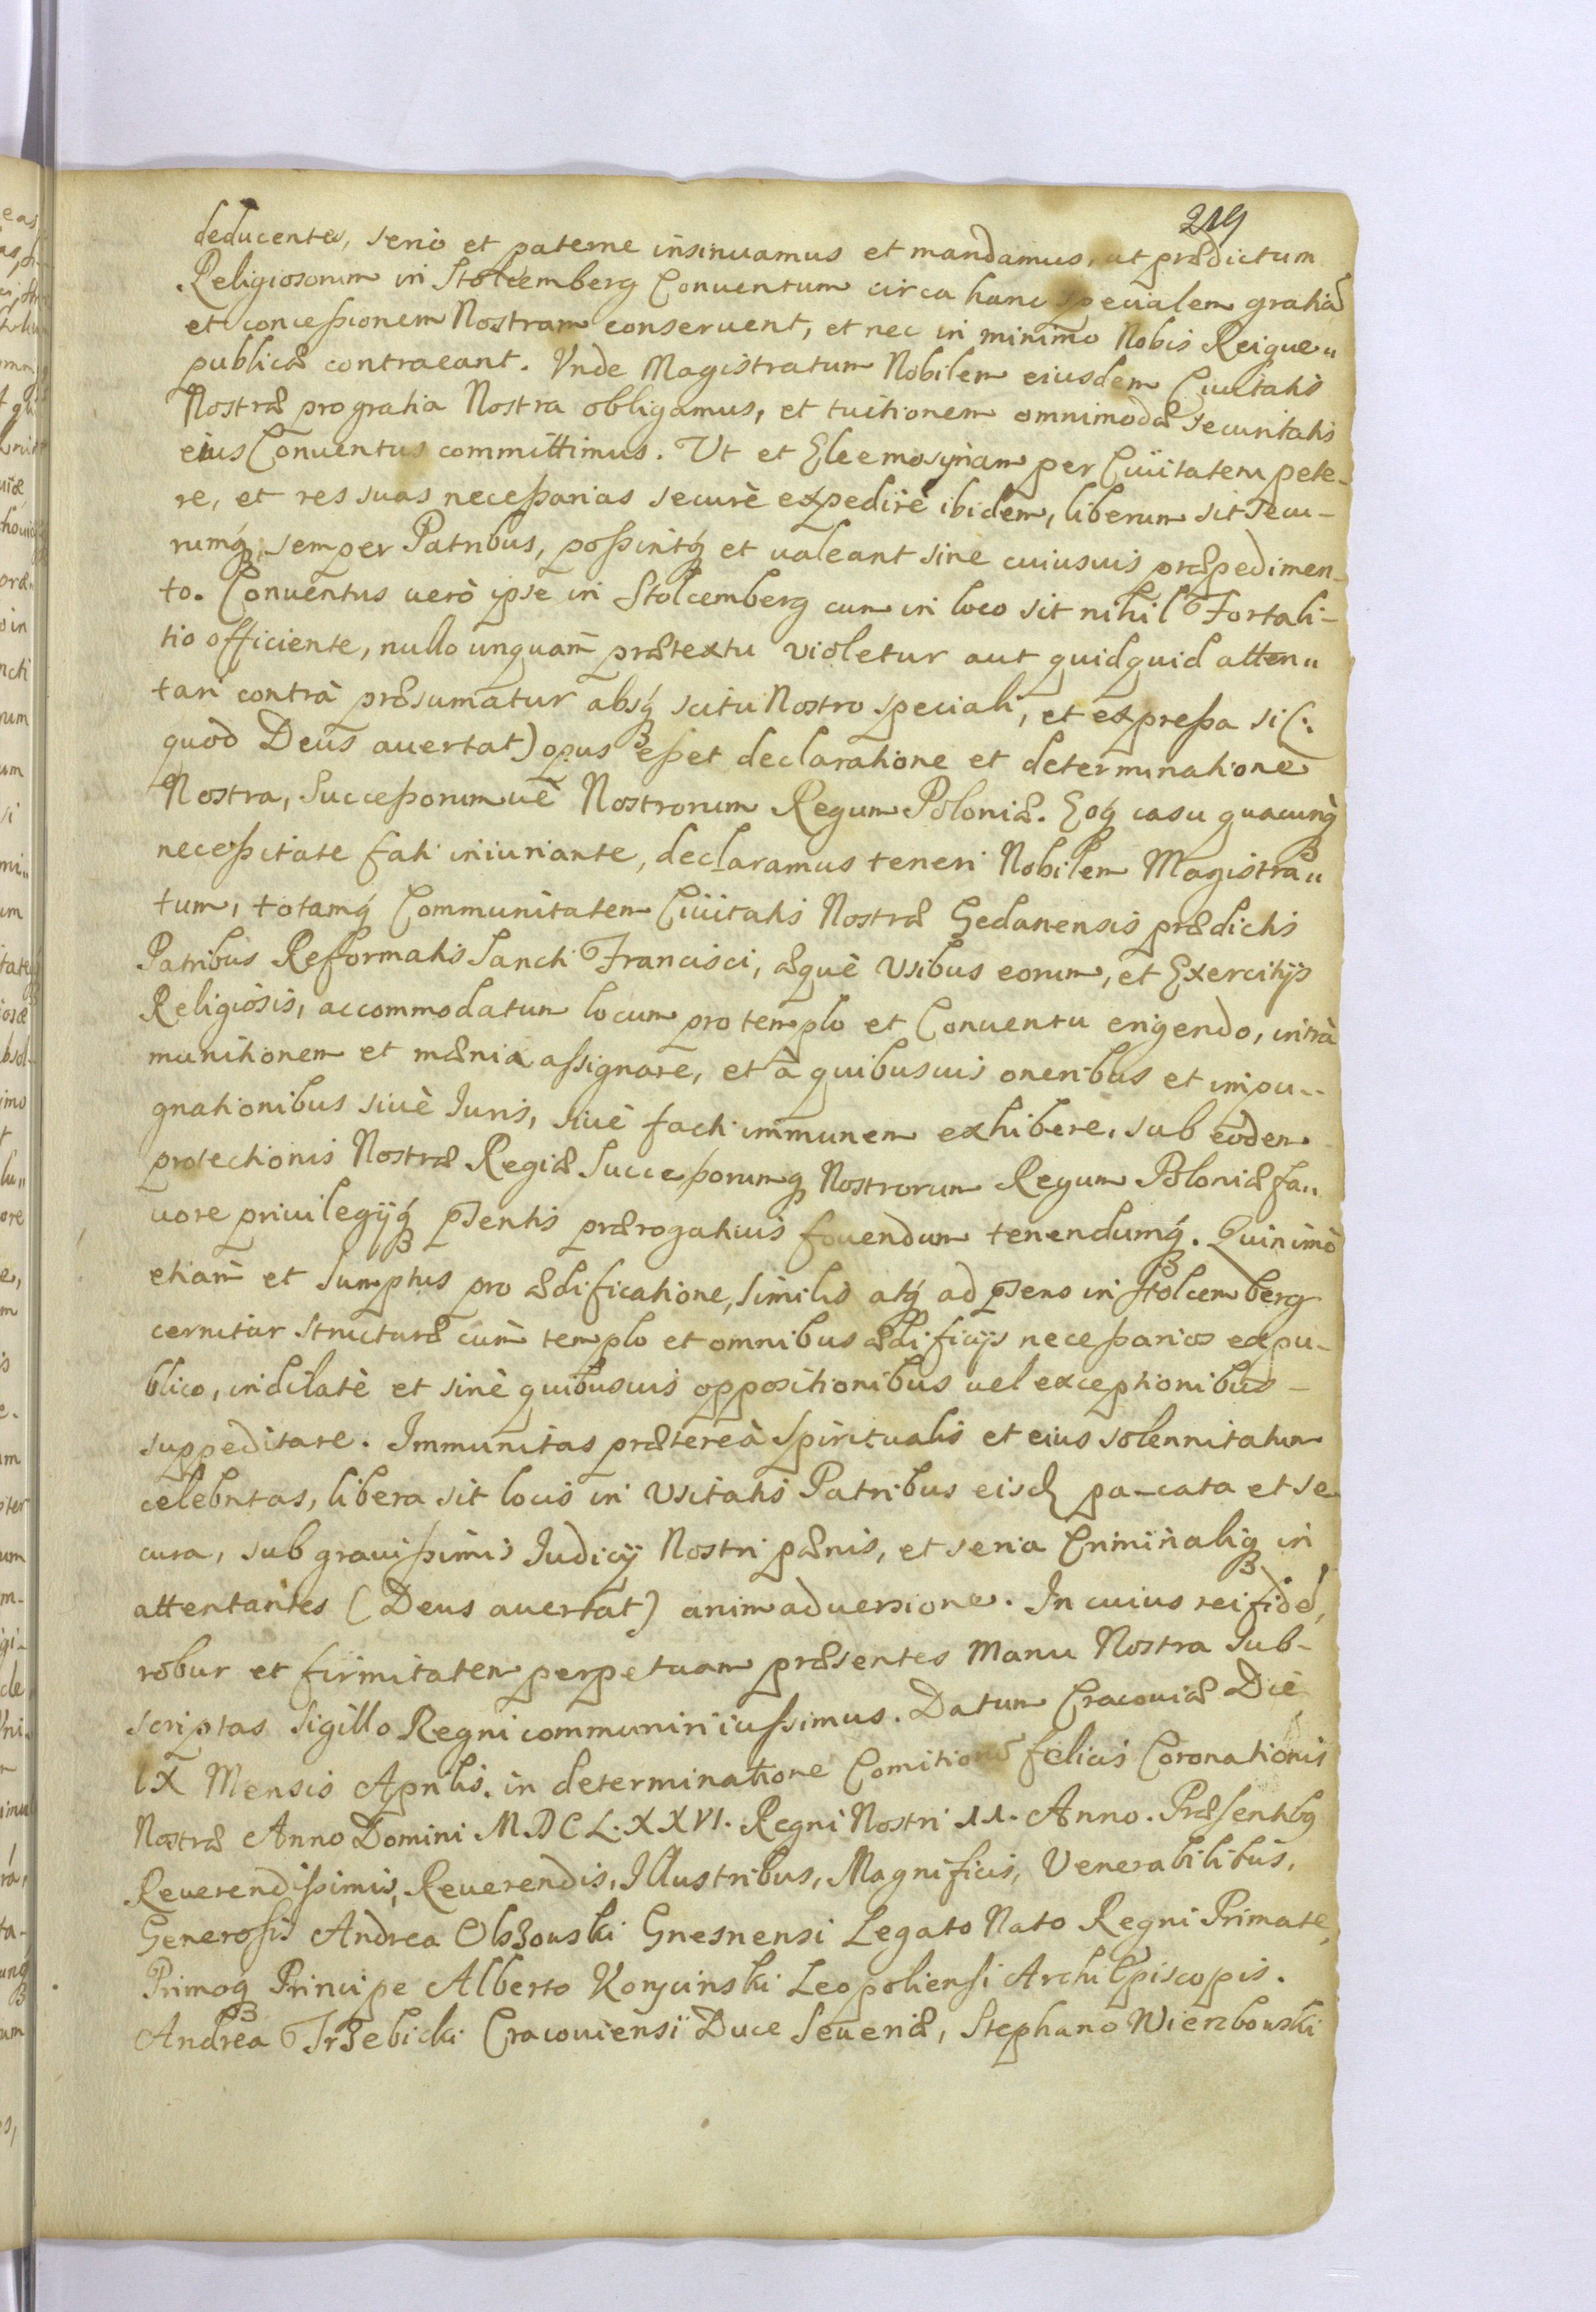 219
deducentes, serio et paterne insinuamus et mandamus, ut prædictum
Religiosorum in Stolcemberg Conuentum circa hanc specialem gratiã
et concessionem Nostram conseruent, et nec in minimo Nobis Reique„
publicæ contraeant. Vnde Magistratum Nobilem eiusdem Ciuitatis
Nostræ pro gratia Nostra obligamus, et tuitionem omnimodæ securitatis
eius Conuentus committimus. Vt et Eleemosynam per Ciuitatem pete-
re, et res suas necessarias securè expedirè ibidem, liberum sit secu-
rumq, semper Patribus, possintq et ualeant sine cuiusuis præpedimen-
to. Conuentus uerò ipse in Stolcemberg cum in loco sit nihil Fortali-
tio officiente, nullo unquam prætextu violetur aut quidquid atten„
tari contrà præsumatur absq scitu Nostro speciali, et expressa si (:
quod Deus auertat) opus esset declaratione et determinatione
Nostra, Successorumuè Nostrorum Regum Poloniæ. Eoq casu quacunq
necessitate fati iniuriante, declaramus teneri Nobilem Magistra„
tum, totamq Communitatem Ciuitatis Nostræ Gedanensis prædictis
Patribus Reformatis Sancti Francisci, æquè Vsibus eorum, et Exercitijs
Religiosis, accommodatum locum pro templo et Conuentu erigendo, intrà
munitionem et mænia assignare, et à quibusuis oneribus et impu-
gnationibus siuè Iuris, siuè facti immunem exhibere, sub eodem
protectionis Nostræ Regiæ Successorumq Nostrorum Regum Poloniæ fa„
uore priuilegijq psentis prærogatiuis fouendum tenendumq. Quinimò
etiam et sumptus pro ædificatione, similis atq ad psens in Stolcemberg
cernitur structuræ cum templo et omnibus ædificijs necessarios ex pu-
blico, indilatè et sinè quibusuis oppositionibus uel exceptionibus -
suppeditare. Immunitas prætereà Spiritualis et eius solennitatum
celebritas, libera sit locis in Vsitatis Patribus eisd pa-cata et se
cura, sub grauissimis Iudicij Nostri pænis, et seria Criminaliq in
attentantes (Deus auertat) animaduersione. In cuius rei fidẽ,
robur et firmitatem perpetuam præsentes Manu Nostra sub-
scriptas Sigillo Regni communiri iussimus. Datum Cracouiæ Die
IX Mensis Aprilis. in determinatione Comitiorũ felicis Coronationis
Nostræ Anno Domini M.DC L.XXVI. Regni Nostri 11. Anno. Præsentibq
Reuerendissimis, Reuerendis, Illustribus, Magnificis, Venerabilibus,
Generosis Andrea Olszouski Gnesnensi Legato Nato Regni Primate,
Primoq Principe Alberto Korycinski Leopoliensi Archi Episcopis.
Andrea Trzebicki Cracouiensi Duce Seueriæ, Stephano Wierzbouski